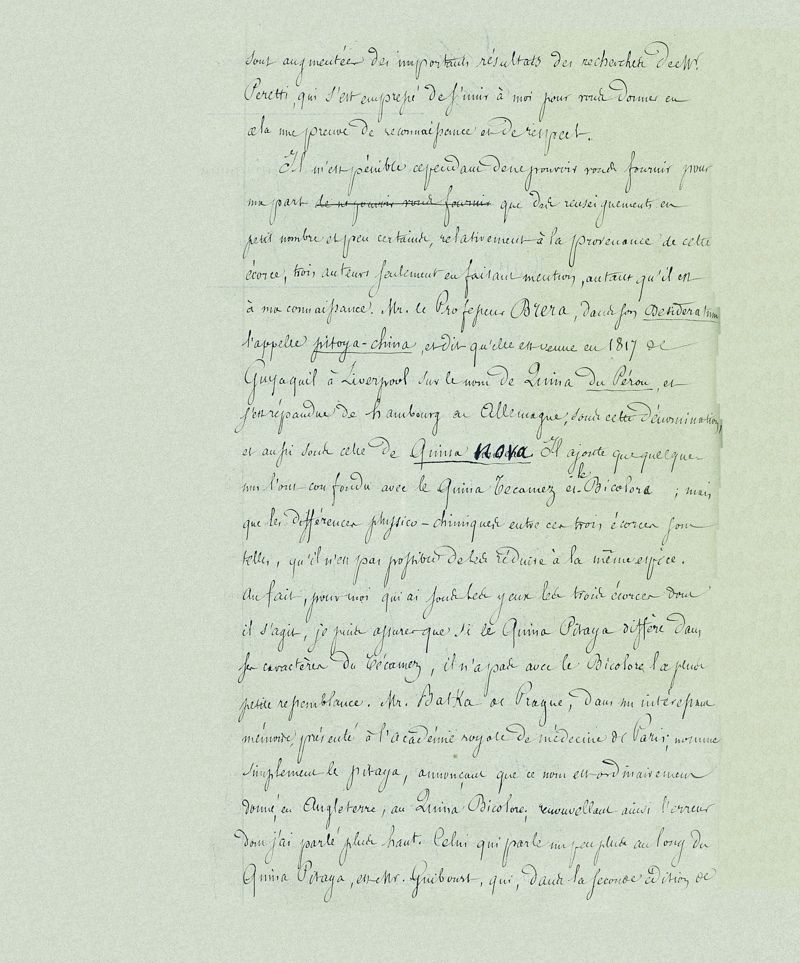 sont augmentées des importants résultats des recherches de Mr.
Peretti, qui s'est empressé de s'unir à moi pour vous donner en
cela une preuve de reconnaissance et de respect.
Il m'est pénible cependant de ne pouvoir vous fournir pour
ma part de ne pouvoir vous fournir que des renseignements en
petit nombre et peu certains, relativement à la provenance de cette
écorce, trois auteurs seulement en faisant mention, autant qu'il est
à ma connaissance. Mr. le Professeur Brera, dans son Desideratum
l'appelle pitoya-china, et dit qu'elle est venue en 1817 de
Guyaquil à Liverpool sur le nom de Quina du Pérou, et
s'est répandue de hambourg en Allemagne, sous cette dénomination,
et aussi sous celle de Quina nova. Il ajoute que quelques
uns l'ont confondu avec le Quina Tecamez et le Bicolore ; mais
que les différences physico-chimiques entre ces trois écorces sont
telles, qu'il n'est pas possible de les réduire à la même espèce.
Au fait, pour moi qui ai sous les yeux les trois écorces dont
il s'agit, je puis assurer que si le Quina Pitaya diffère dans
ses caractères du Técamez, il n'a pas avec le Bicolore la plus
petite ressemblance. Mr. Batka de Prague, dans un intéressant
mémoire, présenté à l'académie royale de médecine de Paris, nomme
simplement le pitaya, annonçant que ce nom est ordinairement
donné, en Angleterre, au Quina Bicolore, renouvellant ainsi l'erreur
dont j'ai parlé plus haut. Celui qui parle un peu plus au long du
Quina Pitaya, est Mr. Guibourt, qui, dans la seconde édition de